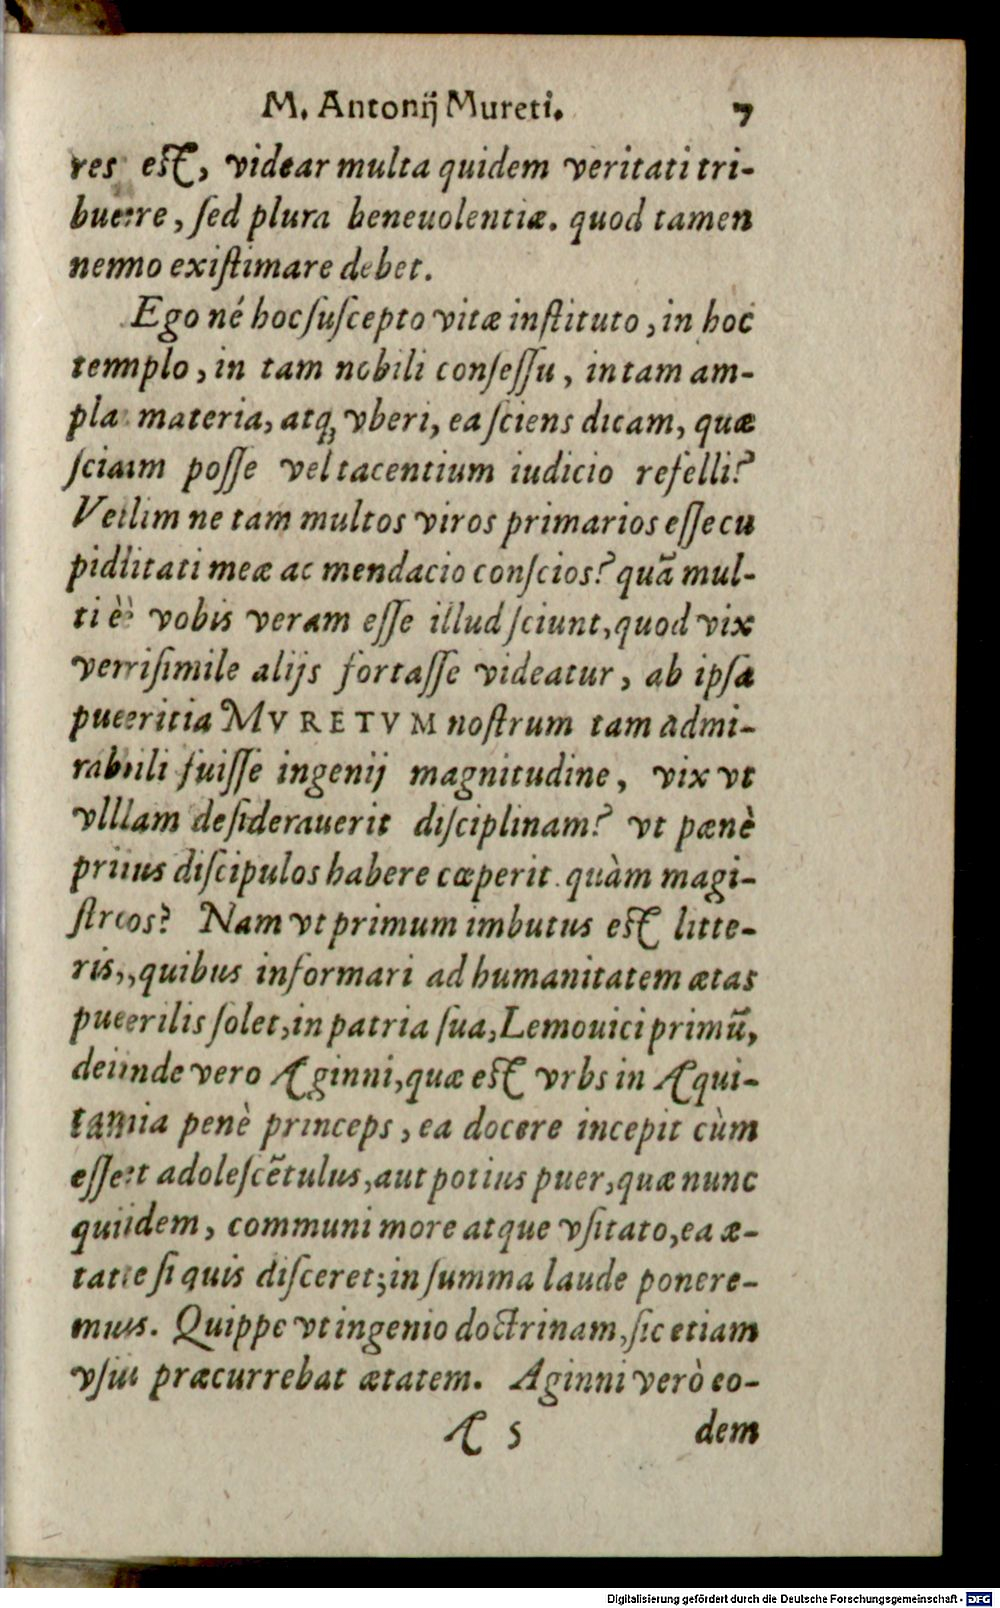 M. Antonij Mureti. 7
res est, videar multa quidem veritati tri-
buere, ſed plura beneuolentiæ. quod tamen
nemo exiſtimare debet.
Ego né hoc ſuſcepto vitæ inſtituto, in hoc
templo, in tam nobili conſeſſu, in tam am-
pla materia, atq́; vberi, ea ſciens dicam, quæ
ſciam poſſe vel tacentium iudicio refelli?
Velim ne tam multos viros primarios eſſe cu
piditati meæ ac mendacio conſcios? quã mul-
ti è vobis veram eſſe illud ſciunt, quod vix
veriſimile alijs fortaſſe videatur, ab ipſa
pueritia MVRETVM noſtrum tam admi-
rabili fuiſſe ingenij magnitudine, vix vt
vllam deſiderauerit diſciplinam? vt pænè
prius diſcipulos habere cœperit quàm magi-
ſtros? Nam vt primum imbutus est litte-
ris, quibus informari ad humanitatem ætas
puerilis ſolet, in patria ſua, Lemouici primũ,
deinde vero Aginni, quæ est vrbs in Aqui-
tania penè princeps, ea docere incepit cùm
eſſet adoleſcẽtulus, aut potius puer, quæ nunc
quidem, communi more atque vſitato, ea æ-
tate ſi quis diſceret; in ſumma laude ponere-
mus. Quippe vt ingenio doctrinam, ſic etiam
vſu præcurrebat ætatem. Aginni verò eo-
A 5 dem
Digitalisierung gefördert durch die Deutsche Forschungsgemeinschaft - DFG